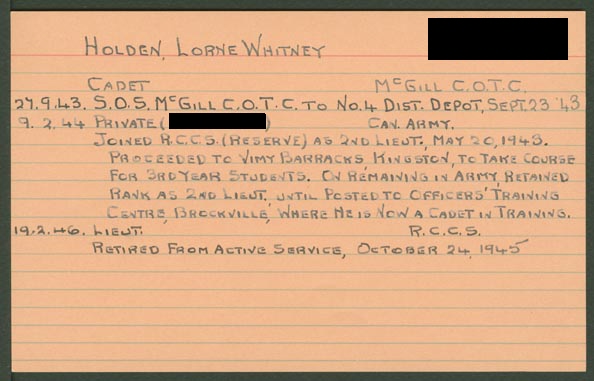 HOLDEN, LORNE WHITNEY
CADET McGILL C.O.T.C.
27.9.43. S.O.S. McGILL C.O.T.C. TO No.4 DIST. DEPOT, SEPT. 23 '43
9. 2. 44 PRIVATE ( ) CAN. ARMY.
JOINED R.C.C.S. (RESERVE) AS 2ND LIEUT., MAY 20, 1943.
PROCEEDED TO VIMY BARRACKS, KINGSTON, TO TAKE COURSE
FOR 3RD YEAR STUDENTS. ON REMAINING IN ARMY, RETAINED
RANK AS 2ND LIEUT. UNTIL POSTED TO OFFICERS' TRAINING
CENTRE, BROCKVILLE, WHERE HE IS NOW A CADET IN TRAINING.
19.2.46. LIEUT. R.C.C.S.
RETIRED FROM ACTIVE SERVICE, OCTOBER 24, 1945